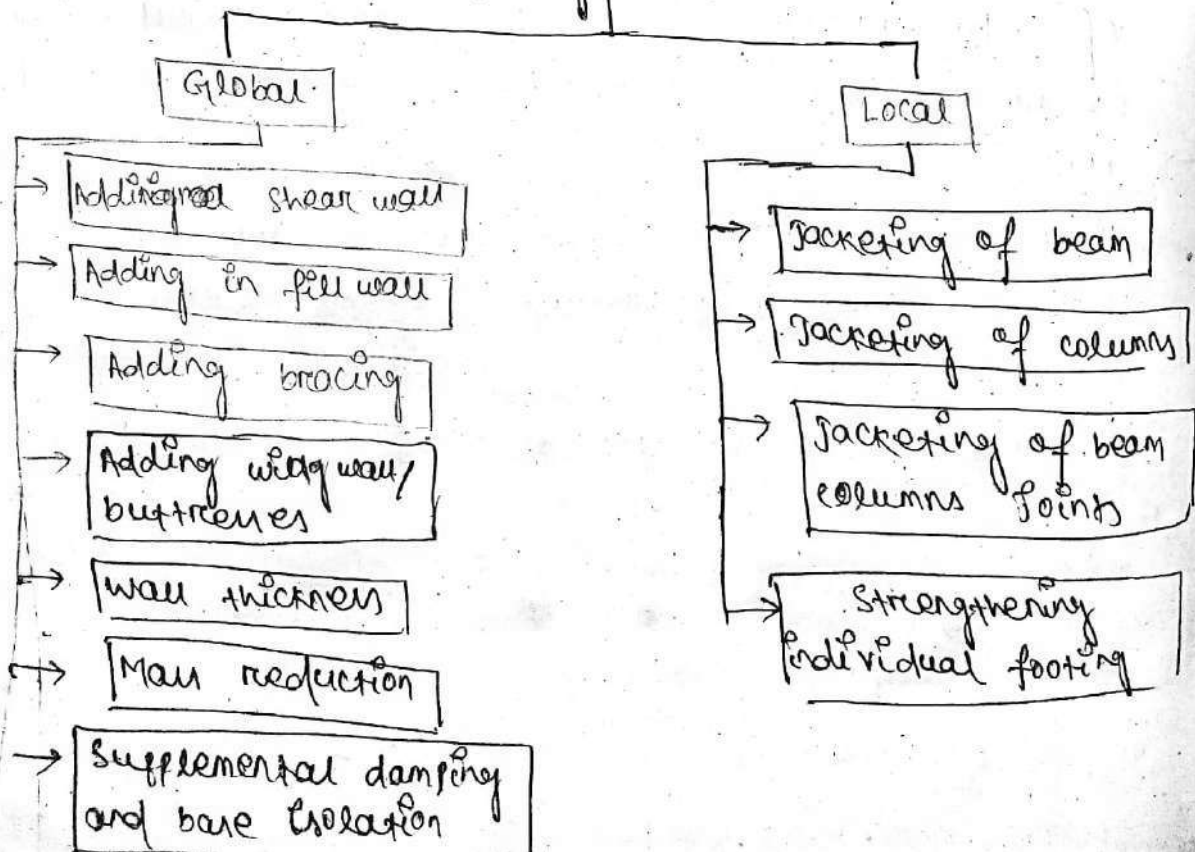 Global
Adding shear wall
Adding in fill wall
Adding bracing
Adding wing wall/
buttresses
wall thickness
Mass reduction
Supplemental damping
and base isolation
Local
Jacketing of beam
Jacketing of columns
Jacketing of beam
columns joints
Strengthening
individual footing